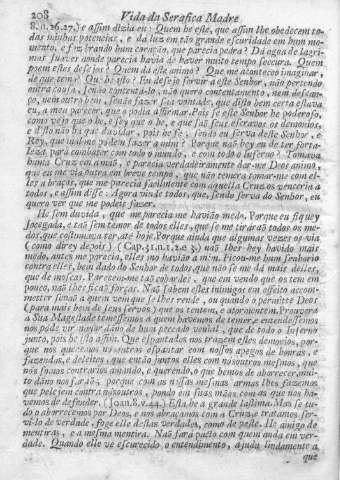 208 Vida da Serafica Madre
8.n.26.27.) e assim dizia eu: Quem he este, que assim lhe obedecem to-
das minhas potencias, e dá luz em taõ grande escuridade em hum mo-
mento, e faz brando hum coraçaõ, que parecia pedra? Dá agoa de lagri-
mas suaves aonde parecia havia de haver muito tempo seccura. Quem
poem estes desejos? Quem dá este animo? Que me aconteceo imaginar,
de que temo? Que he isto? Eu desejo servir a este Senhor, naõ pertendo
outra cousa, senaõ contentalo, naõ quero contentamento, nem descan-
ço, nem outro bem, senaõ fazer sua vontade, que disto bem certa estava
eu, a meu parecer, que o podia affirmar. Pois se este Senhor he poderoso,
como vejo que o he, e sey que o he, e que saõ seus escravos os demonios,
e disto naõ ha que duvidar, pois he fé; sendo eu serva deste Senhor, e
Rey, que mal me podem fazer a mim? Porque naõ hey eu de ter forta-
leza para combater com todo o mundo, e com todo o inferno? Tomava
huma Cruz em a maõ, e parecia verdadeiramente dar-me Deos animo,
que eu me via outra em breve tempo, que naõ temera tomar-me com el-
les a braços, que me parecia facilmente com aquella Cruz os venceria a
todos, e assim disse: Agora vinde todos, que, sendo serva do Senhor, eu
quero ver que me podeis fazer.
He sem duvida, que me parecia me haviaõ medo. Porque eu fiquey
socegada, e taõ sem temor de todos elles, que se me tiraraõ todos os me-
dos, que costumava ter até hoje. Porque ainda que algumas vezes os via
(como direy depois) (Cap.31.n.1.2.e 3.) naõ lhes hey havido mais
medo, antes me parecia, elles mo haviaõ a mim. Ficou-me hum senhorio
contra elles, bem dado do Senhor de todos, que naõ se me dá mais delles,
que de moscas. Parecem-me taõ cobardes, que em vendo que os tem em
pouco, naõ lhes fica força. Naõ sabem estes inimigos em effeito accom-
metter senaõ a quem vem que se lhes rende, ou quando o permitte Deos
(para mais bem de seus servos) que os tentem, e atormentem. Prouvera
a Sua Magestade temessemos a quem havemos de temer, e entendessemos
nos póde vir mayor dano de hum peccado venial, que de todo o Inferno
junto, pois he isto assim. Que espantados nos trazem estes demonios, por-
que nos queremos nósoutros espantar com nossos apegos de honras, e
fazendas, e deleites; que entaõ juntos elles com nósoutros mesmos, que
nós somos contrarios amando, e querendo, o que hemos de aborrecer, mui-
to dano nos faraõ; porque com as nossas mesmas armas lhes fazemos
que pelejem contra nósoutros, pondo em suas mãos com as que nos ha-
vemos de defender. (Joan.8.v.44.) Esta he a grande lastima. Mas se tu-
do o aborrecemos por Deos, e nos abraçamos com a Cruz, e tratamos ser-
vi-lo de verdade, foge elle destas verdades, como de peste. He amigo de
mentiras, e a mesma mentira. Naõ fará pacto com quem anda em ver-
dade. Quando elle vê escurecido o entendimento, ajuda lindamente a
que